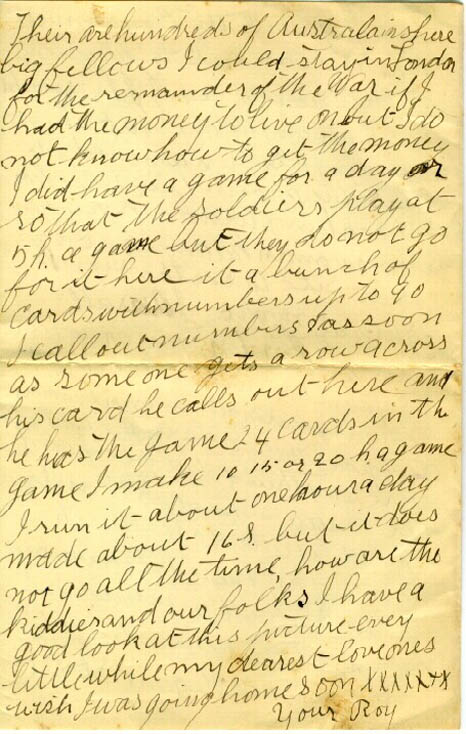 Their are hundreds of Australains here
big fellows I could stay in London
for the remainder of the War if I
had the money to live on but I do
not know how to get the money
I did have a game for a day or
so that the soldiers play at
5 h. a game but they do not go
for it here it a bunch of
cards with numbers up to 90
I call out numbers & as soon
as some one gets a row across
his card he calls out here and
he has the game 24 cards in the
game I make 10 15 or 20 h. a game
I run it about one hour a day
made about 16 S. but it does
not go all the time, how are the
kiddies and our folks I have a
good look at this picture every
little while my dearest love ones
wish I was going home soon xxxxxxx
Your Roy